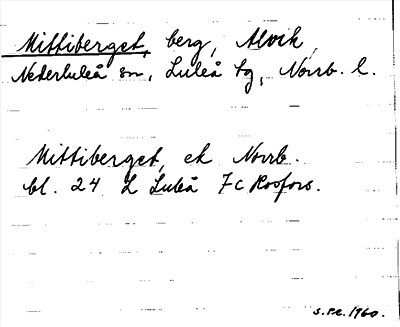 Mittiberget, berg, Alvik,
Nederluleå sn, Luleå tg, Norrb. l.
Mittiberget, ek Norrb.
bl. 24 L Luleå 7c Rosfors.
S.P.E. 1960.